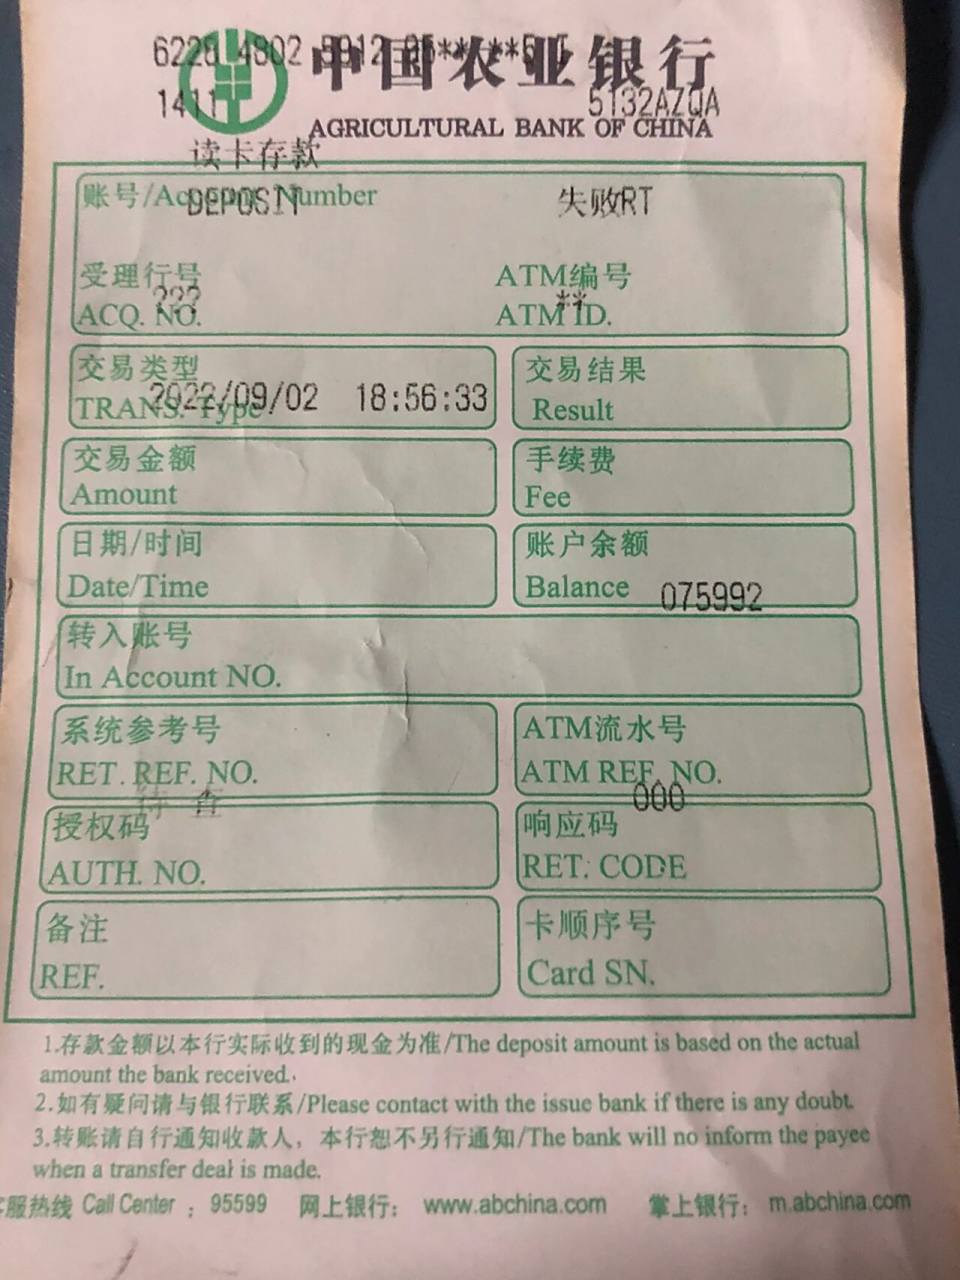 中国农业银行
AGRICULTURAL BANK OF CHINA
6228 4802
1411 5132AZQA
读卡存款
账号/Account Number
DEPOSIT 失败RT
受理行号 ATM编号
??? **
ACQ. NO. ATM ID.
交易类型 交易结果
2022/09/02 18:56:33
TRANS. Type Result
交易金额 手续费
Amount Fee
日期/时间 账户余额
Date/Time Balance 075992
转入账号
In Account NO.
系统参考号 ATM流水号
RET. REF. NO. ATM REF. NO.
待查 000
授权码 响应码
AUTH. NO. RET. CODE
备注 卡顺序号
REF. Card SN.
1.存款金额以本行实际收到的现金为准/The deposit amount is based on the actual
amount the bank received.
2.如有疑问请与银行联系/Please contact with the issue bank if there is any doubt.
3.转账请自行通知收款人，本行恕不另行通知/The bank will no inform the payee
when a transfer deal is made.
客服热线 Call Center：95599 网上银行：www.abchina.com 掌上银行：m.abchina.com